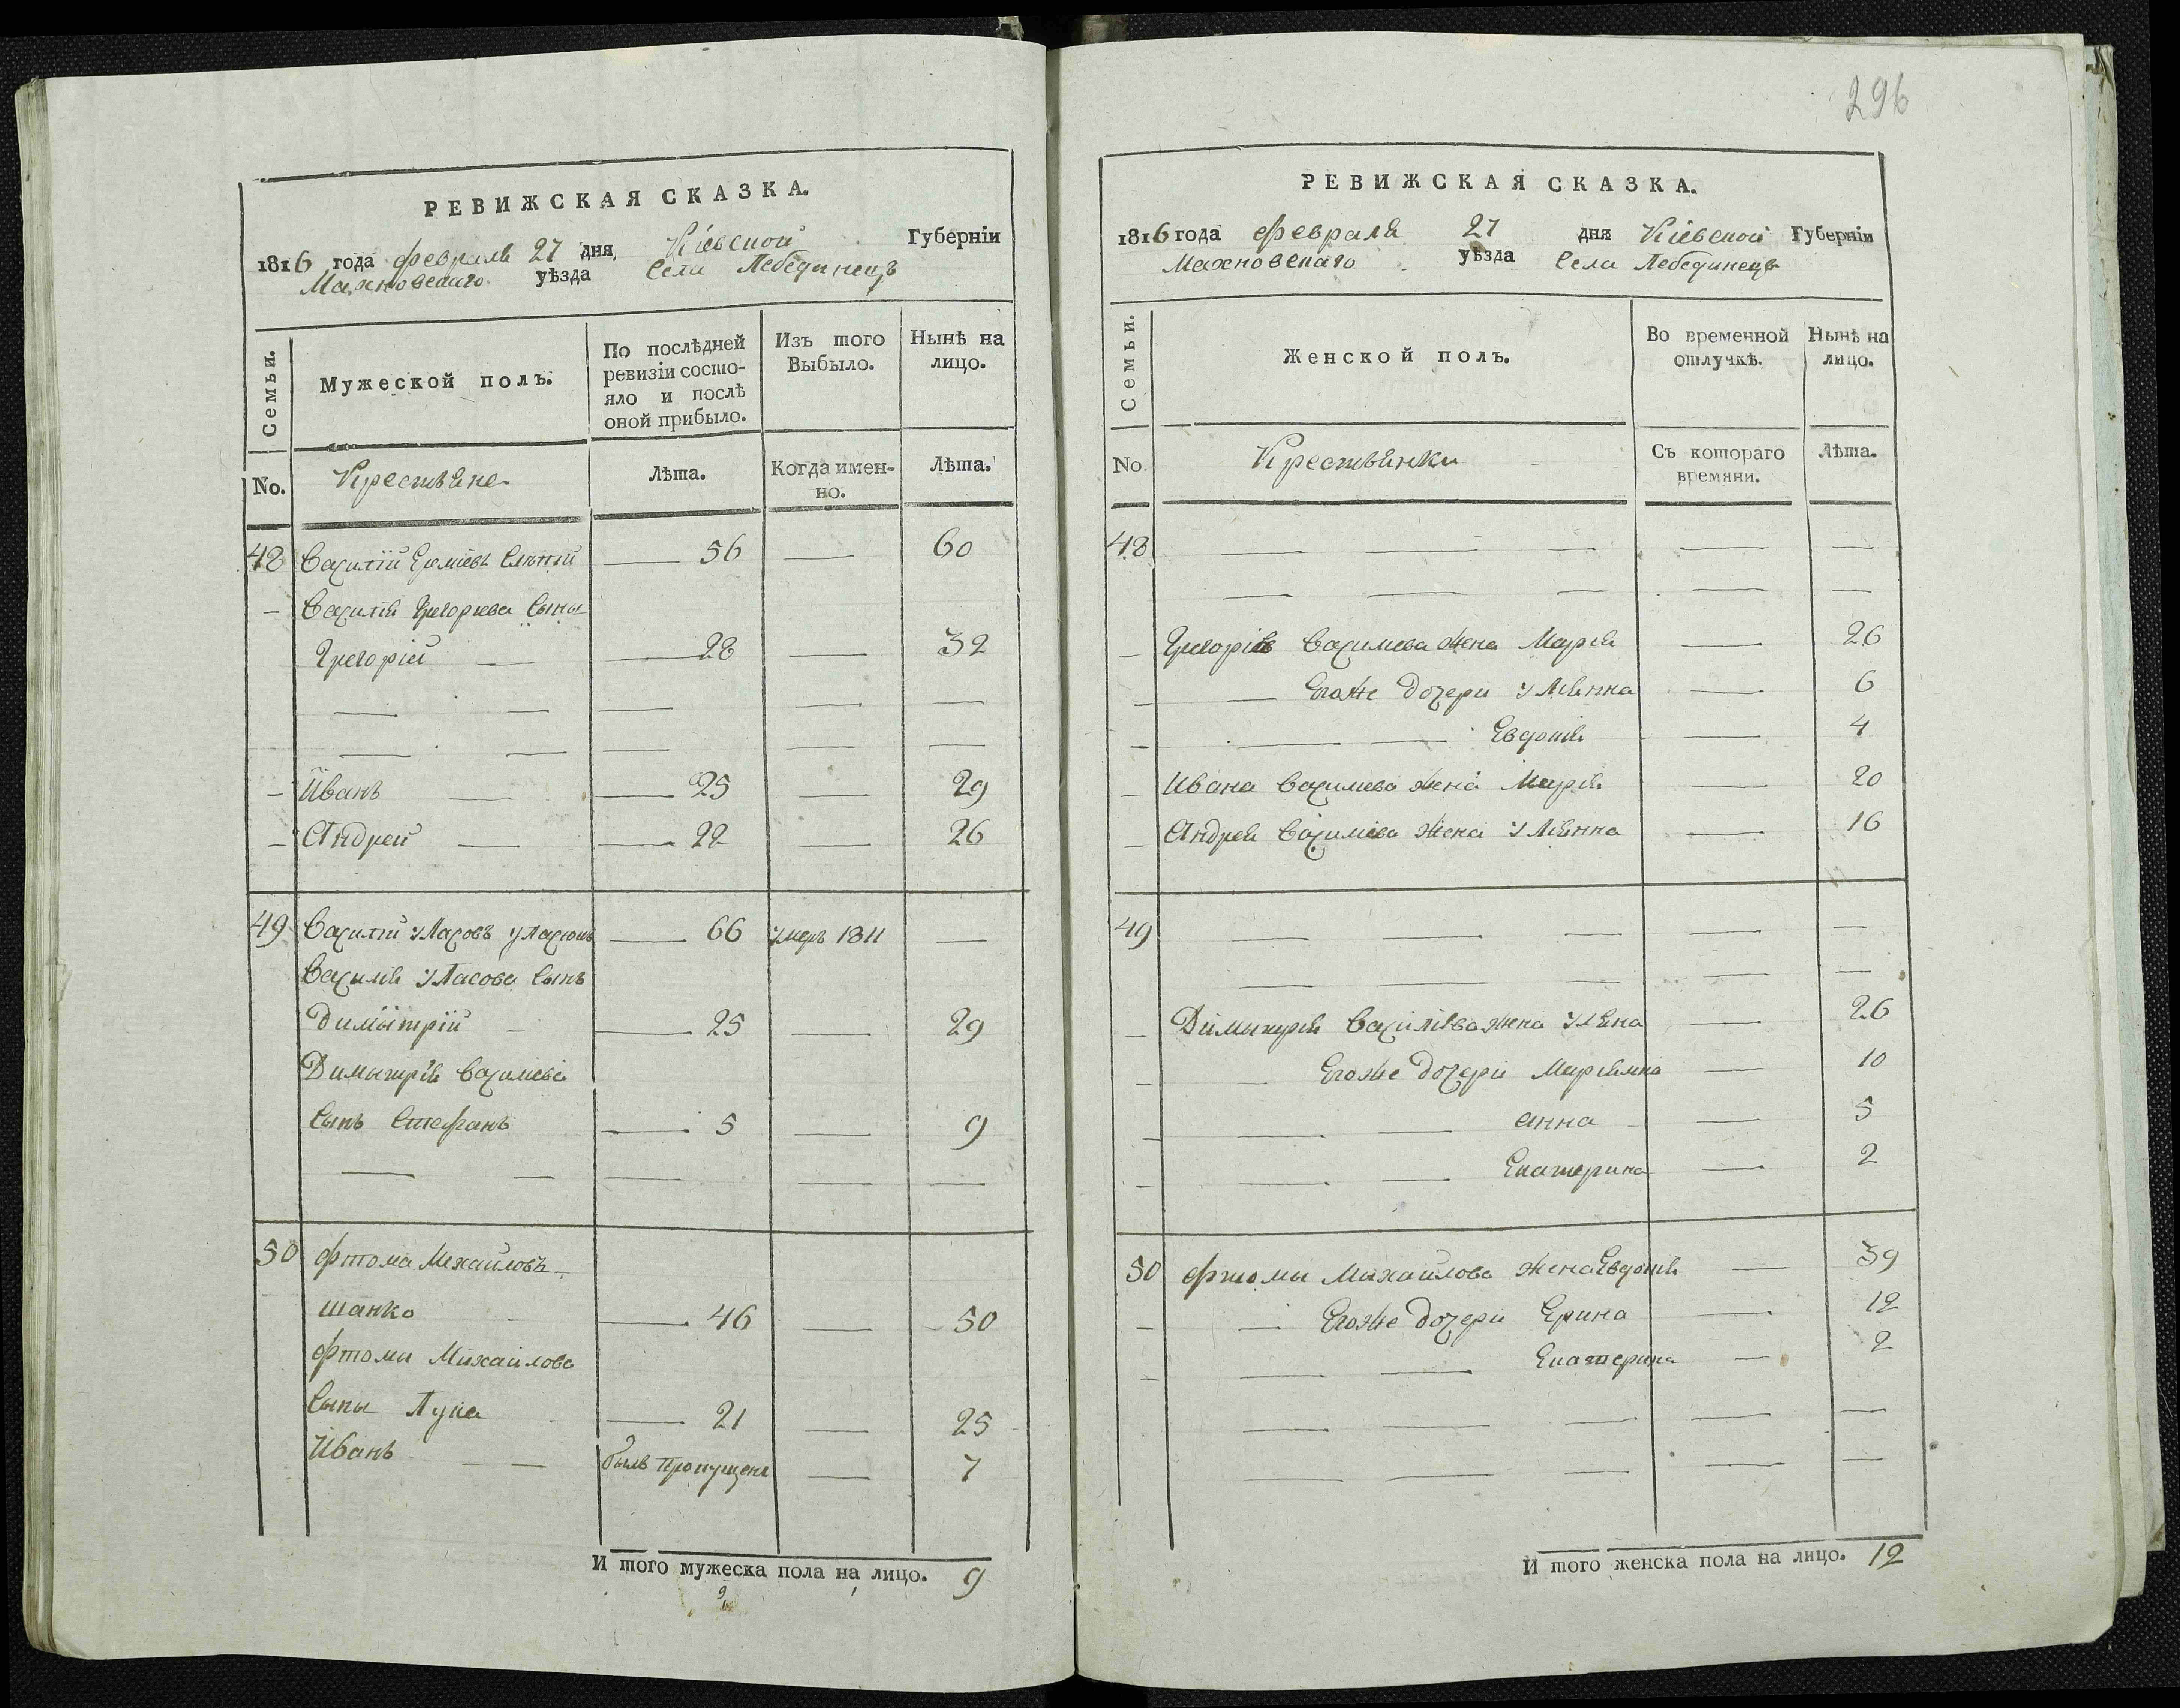 296
РЕВИЖСКАЯ СКАЗКА.
1816 года февраля 27 дня, Кіевской Губерніи
Махновскаго уѣзда Села Лебединецъ
Семьи.
Мужеской полъ.
По послѣдней ревизіи состо-
яло и послѣ
оной прибыло.
Изъ того
Выбыло.
Нынѣ на
лицо.
No.
Крестьяне
Лѣта.
Когда имен-
но.
Лѣта.
48 Василій 56 — 60
— Василія Григорьева Сыны
Григорій — — 28 — 32
— — — — —
— — — —
— Иванъ — — 25 — 29
— Андрей — — 22 — 26
49 Василій Уласовъ — 66 умеръ 1811 —
Василія Уласова Сынъ
Димитрій — 25 — 29
Димитрія Василіева
Сынъ Стефанъ — 5 — 9
— — — — —
50 Фтома Михайловъ
шапко — 46 — 50
Фтомы Михайлова
Сыны Лука — 21 — 25
Иванъ — — былъ пропущенъ — 7
И того мужеска пола на лицо. 9
РЕВИЖСКАЯ СКАЗКА.
1816 года февраля 27 дня Кіевской Губерніи
Махновскаго уѣзда Села Лебединецъ
Семьи.
Женской полъ.
Во временной
отлучкѣ.
Нынѣ на
лицо.
No.
Крестьянки
Съ котораго
времяни.
Лѣта.
48 — — — — —
— — — — —
— Григорія Василіева жена Марія — 26
— — Егоже дочери Уліянна — 6
— — — Евдокія — 4
— Ивана Василіева жена Марія — 20
— Андрея Василіева жена Уліянна — 16
49 — — — — —
— — — — —
— Димитрія Василіева жена Уляна — 26
— — Егоже дочери Маріянна — 10
— — — анна — 5
— — — Екатерина — 2
50 Фтомы Михайлова жена Евдокія — 39
— — Егоже дочери Ерина — 12
— — — Екатерина — 2
— — — — —
— — — — —
И того женска пола на лицо. 12